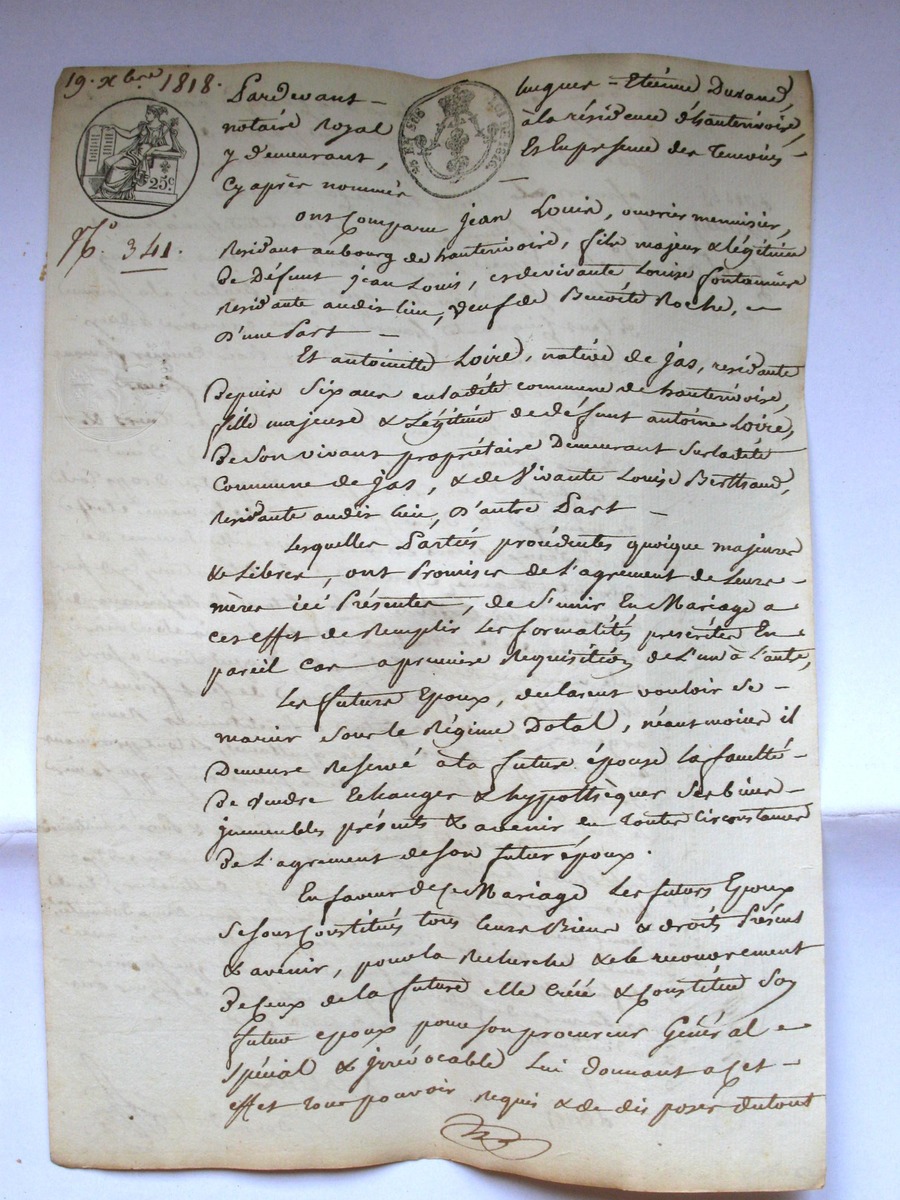 19. xbre 1818.
Pardevant – hugues – Etiénne Durand,
notaire Royal à la résidence d'hauterivoire,
y demeurant, Et En presence des Temoins –
Cy après nommés –
25c
N.o 341.
ont Comparu jean Louis, ouvrier menuisier,
Residant au bourg de hauterivoire, fils majeur & légitime
De Défunt jean Louis, et de vivante Louise fontanière
Residante au dit lieu, veuf de Benoîte Roche, –
D'une Part –
Et antoinette Loire, native de jas, residante
Depuis Six ans en ladite commune de hauterivoire,
fille majeure & Légitime de défunt antoine Loire,
De Son vivant propriétaire Demeurant Sur ladite
Commune de jas, & de Vivante Louise Berthaud,
Residante au dit lieu, D'autre Part –
Lesquelles Parties procédentes quoique majeures
& Libres, ont Promises de L'agrement de Leurs –
mères ici Présentes, de S'unir En Mariage a
cet effet de Remplir Les formalités prescrites En
pareil cas a premiere Requisition de L'un à L'autre,
Les futurs Epoux, declarent vouloir Se –
marier Sous le Régime Dotal, néant moins il
Demeure Reservé à la future épouse la faculté –
De vendre Echanger & hypothèquer Ses biens –
immeubles présents & avenir en Toutes Circonstances
De L'agrement de Son futur époux.
En faveur de Ce Mariage Les futurs Epoux
Se Sont Constitués tous Leurs Biens & droits Présent
& avenir, pour la Recherche & le recouvrement
De Ceux de la future elle Créé & Constitue Son
futur epoux pour Son procureur Général –
Spécial & irrévocable Lui donnant a Cet –
effet Tous pouvoirs Requis & de disposer du tout